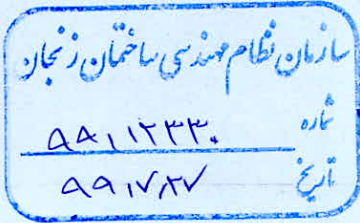 سازمان نظام مهندسی ساختمان زنجان
شماره ۹۹,۱۲۳۳۰
تاریخ ۹۹,۷,۲۷